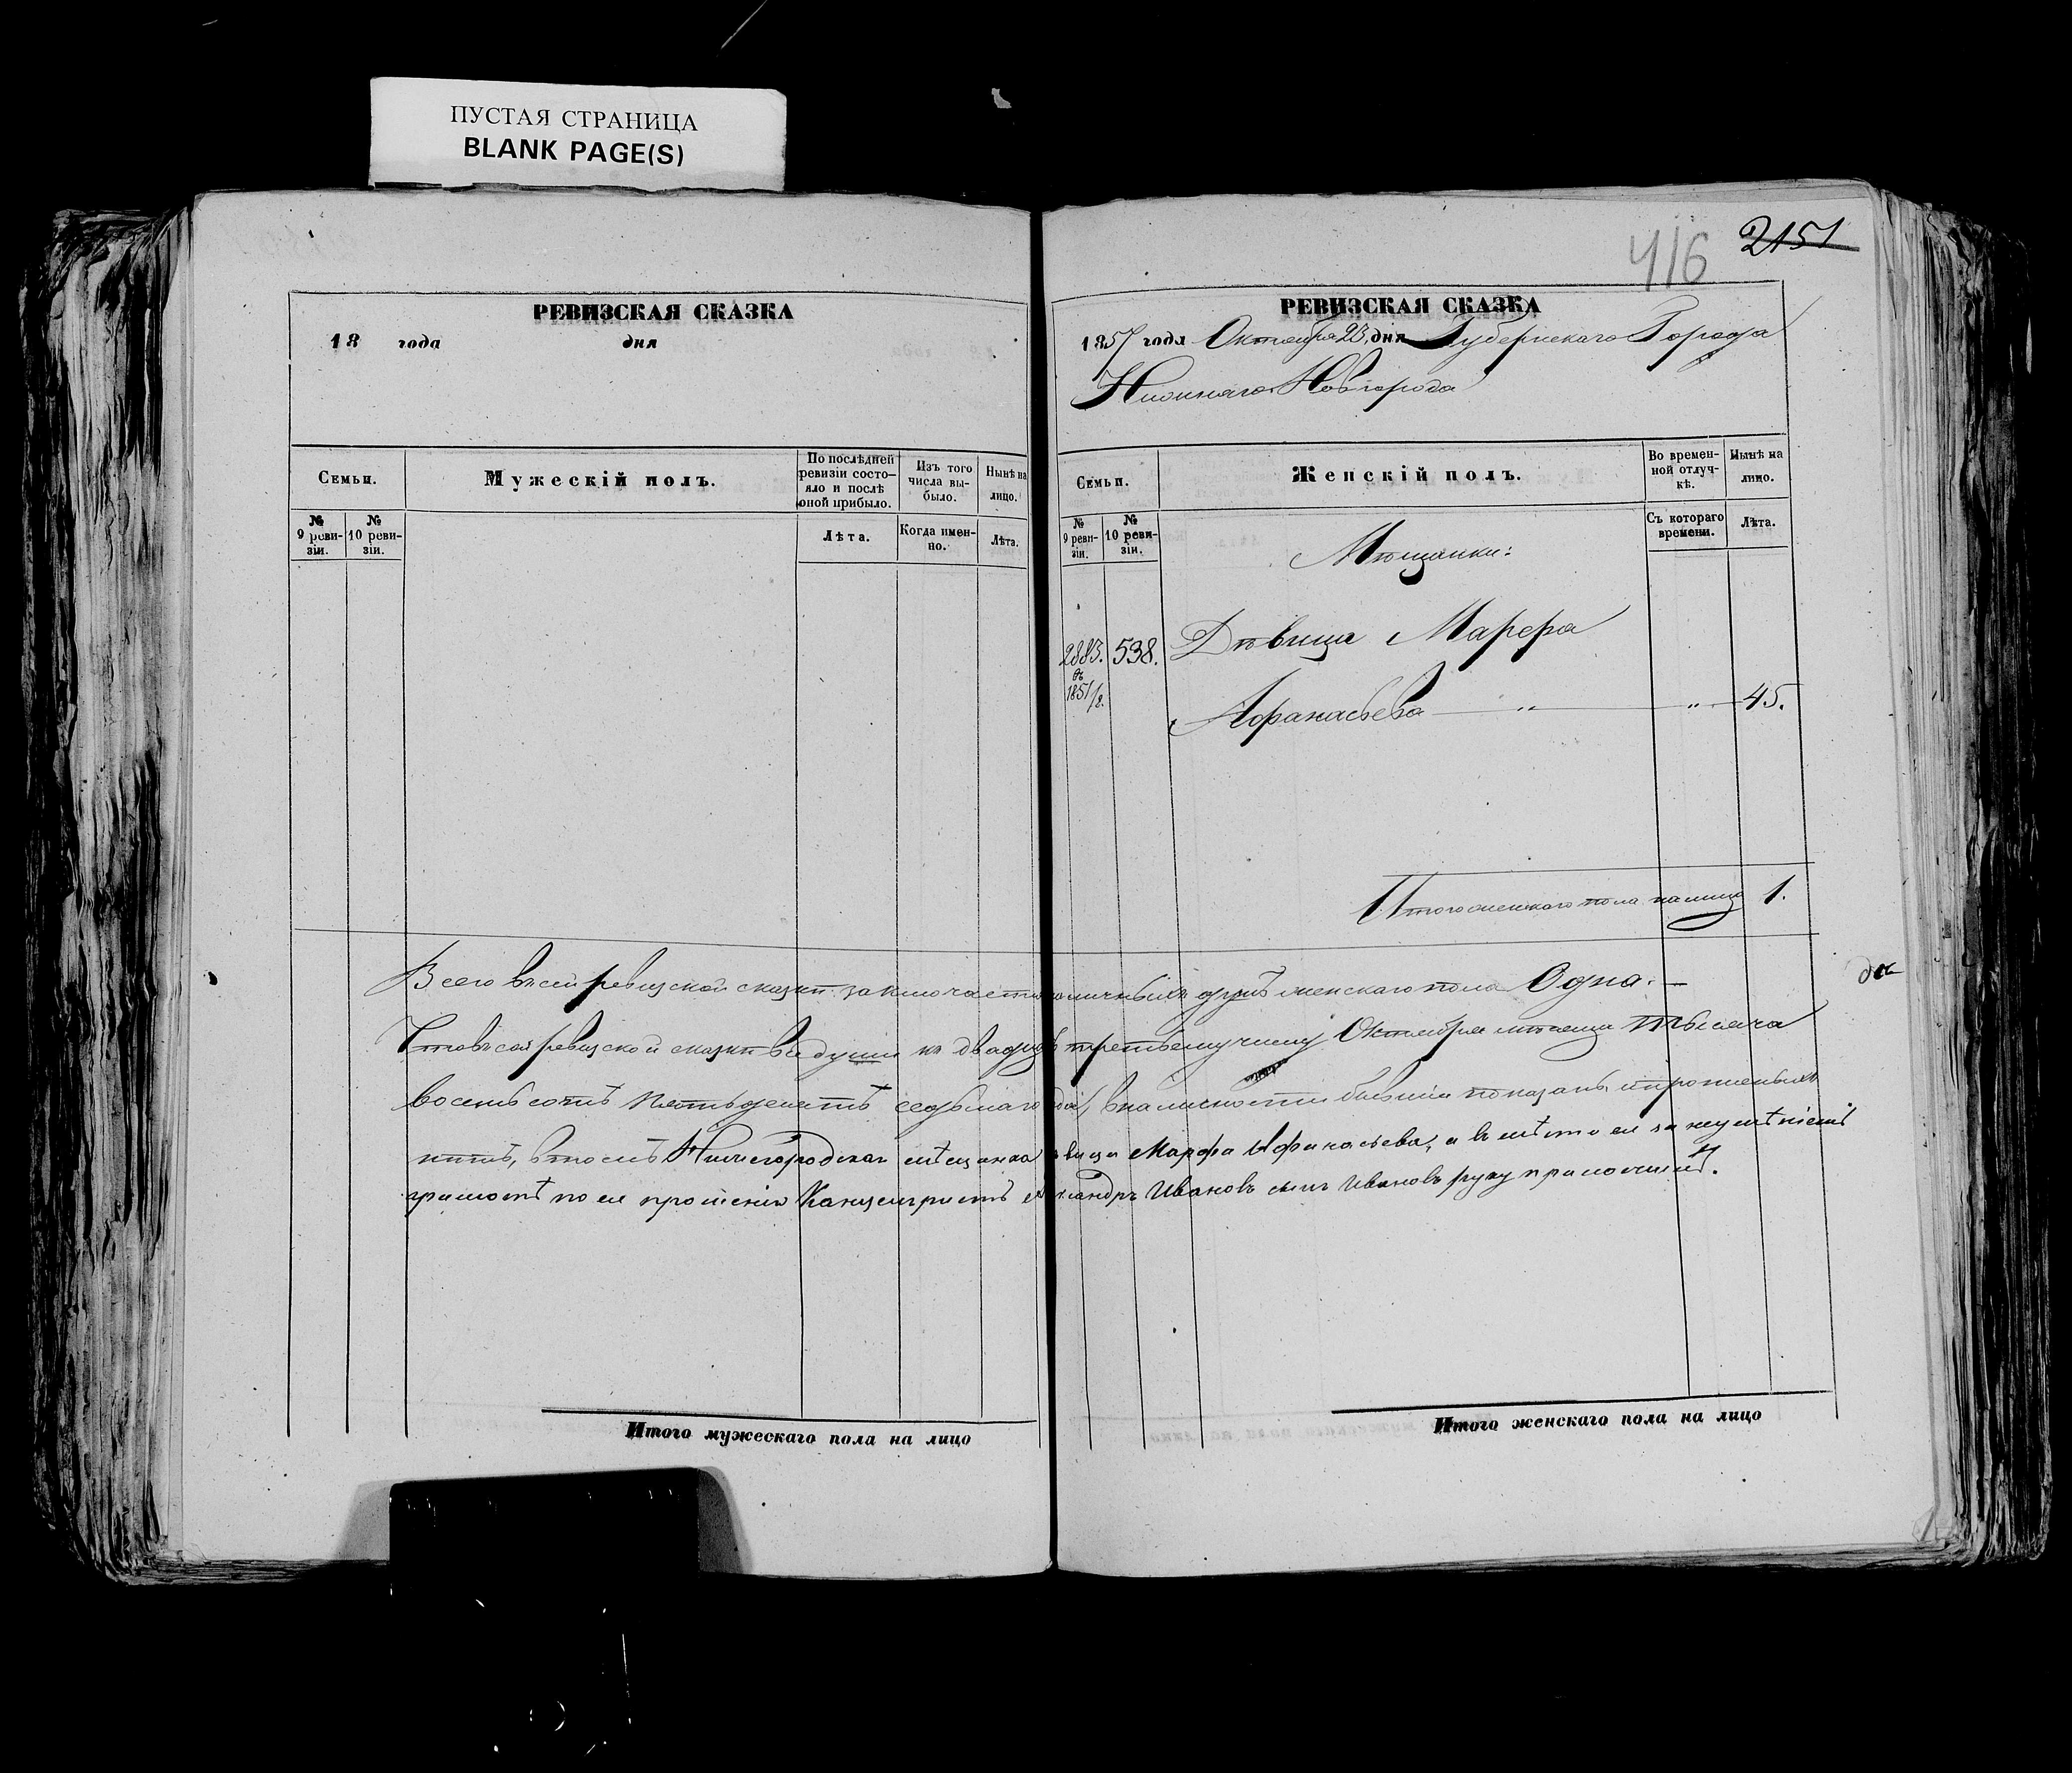 ПУСТАЯ СТРАНИЦА
BLANK PAGE(S)
РЕВИЗСКАЯ СКАЗКА
18 года дня
Семьи.
Мужескій полъ.
По послѣдней ревизіи состояло и послѣ оной прибыло.
Изъ того числа выбыло.
Нынѣ на лицо.
№ 9 ревизіи.
№ 10 ревизіи.
Лѣта.
Когда именно.
Лѣта.
Итого мужескаго пола на лицо
416 2151
РЕВИЗСКАЯ СКАЗКА
1857 года Октября 23 дня Губернскаго Города
Нижняго Новгорода
Семьи.
Женскій полъ.
Во временной отлучкѣ.
Нынѣ на лицо.
№ 9 ревизіи.
№ 10 ревизіи.
Съ котораго времени.
Лѣта.
Мѣщанки:
2883. 538. Дѣвица Марфа
1851/2. Афанасьева 45.
Итого женскаго пола на лицо 1.
Всего въ сей ревизской сказкѣ заключается наличныхъ душъ женскаго пола Одна.
Что въ сей ревизской сказкѣ всѣ души къ двадцать третьему числу Октября мѣсяца тысяча
восемьсотъ пятьдесятъ седьмаго года, въ наличности бывшія показаны и пропиленныхъ
нѣтъ, въ томъ Нижегородская мѣщанка дѣвица Марфа Афанасьева, а вмѣсто ея за неумѣніемъ
грамотѣ по ея прошенію Канцеляристъ Александръ Ивановъ сынъ Ивановъ руку приложилъ.
Итого женскаго пола на лицо